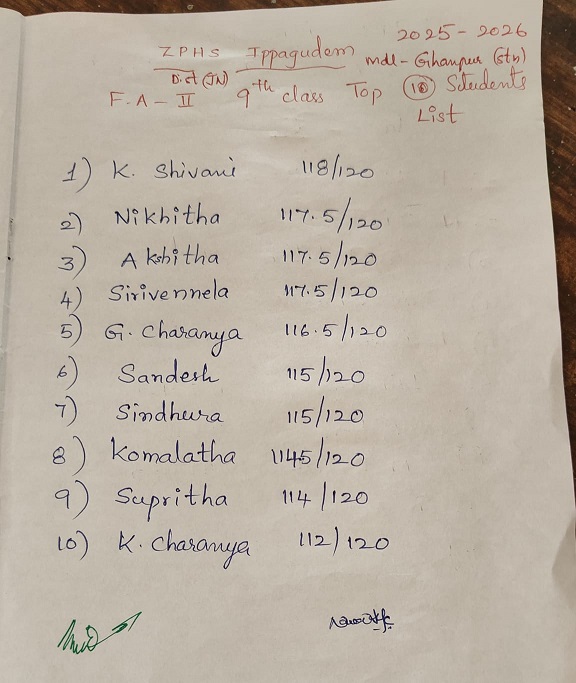 2025-2026
ZPHS Ippagudem mdl-Ghanpur (stn)
Dist (JN)
F.A-II 9th class Top (10) Students
List
1) K. Shivani 118/120
2) Nikhitha 117.5/120
3) Akshitha 117.5/120
4) Sirivennela 117.5/120
5) G. Charanya 116.5/120
6) Sandesh 115/120
7) Sindhura 115/120
8) Komalatha 1145/120
9) Supritha 114/120
10) K. Charanya 112/120